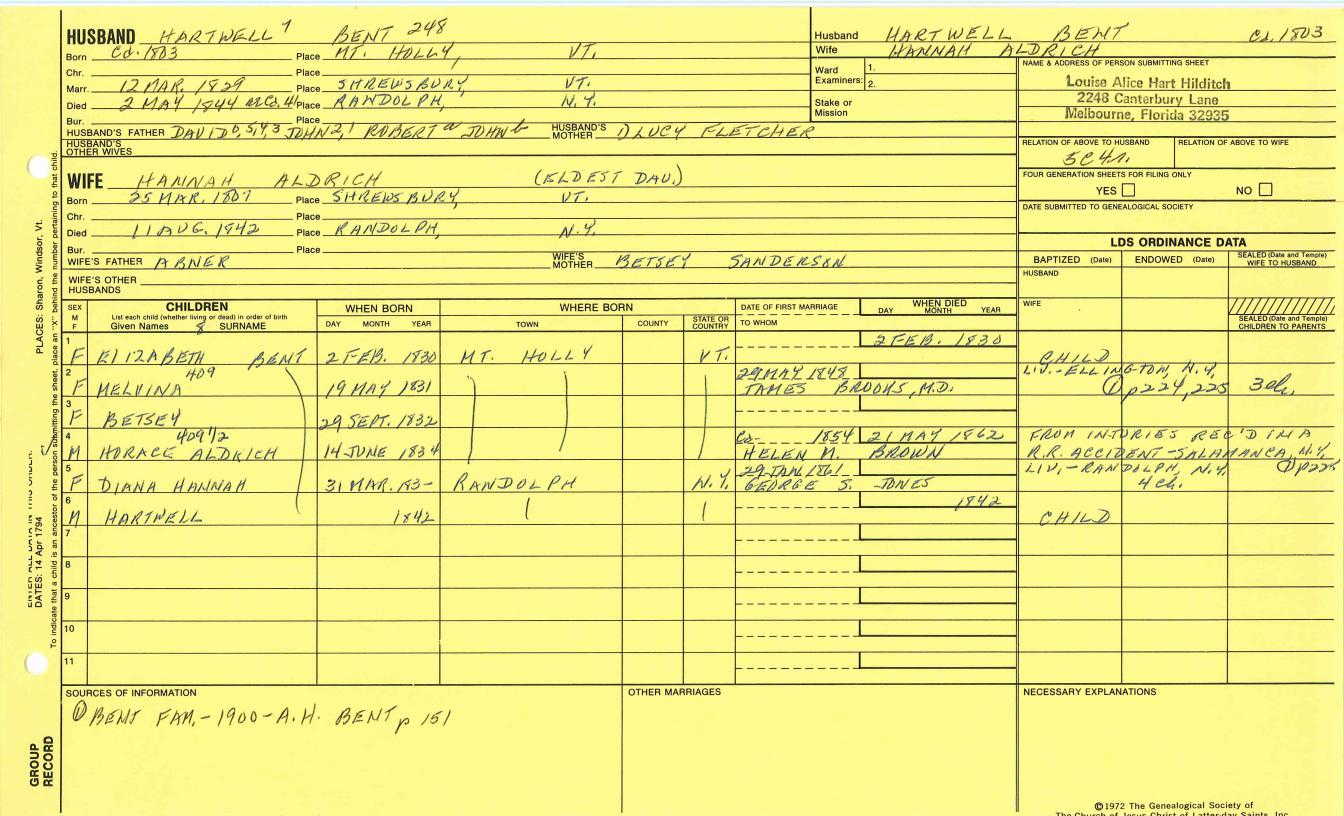 HUSBAND HARTWELL 7 BENT 248
Born Ca. 1803 Place MT. HOLLY, VT.
Chr. Place
Marr. 12 MAR. 1829 Place SHREWSBURY, VT.
Died 2 MAY 1844 Place RANDOLPH, N.Y.
Bur. Place
HUSBAND'S FATHER DAVID 6,5,4,3 JOHN 2,1 ROBERT a JOHN b HUSBAND'S MOTHER LUCY FLETCHER
HUSBAND'S OTHER WIVES
Husband HARTWELL BENT Ca. 1803
Wife HANNAH ALDRICH
Ward Examiners: 1.
2.
Stake or Mission
NAME & ADDRESS OF PERSON SUBMITTING SHEET
Louise Alice Hart Hilditch
2248 Canterbury Lane
Melbourne, Florida 32935
RELATION OF ABOVE TO HUSBAND RELATION OF ABOVE TO WIFE
5C4r.
FOUR GENERATION SHEETS FOR FILING ONLY
YES NO
DATE SUBMITTED TO GENEALOGICAL SOCIETY
WIFE HANNAH ALDRICH (ELDEST DAU.)
Born 25 MAR. 1807 Place SHREWSBURY, VT.
Chr. Place
Died 11 AUG. 1842 Place RANDOLPH, N.Y.
Bur. Place
WIFE'S FATHER ABNER WIFE'S MOTHER BETSEY SANDERSON
WIFE'S OTHER HUSBANDS
LDS ORDINANCE DATA
BAPTIZED (Date) ENDOWED (Date) SEALED (Date and Temple) WIFE TO HUSBAND
HUSBAND
WIFE
SEALED (Date and Temple) CHILDREN TO PARENTS
SEX M F CHILDREN WHEN BORN WHERE BORN DATE OF FIRST MARRIAGE WHEN DIED
List each child (whether living or dead) in order of birth
Given Names 8 SURNAME DAY MONTH YEAR TOWN COUNTY STATE OR COUNTRY TO WHOM DAY MONTH YEAR
1 2 FEB. 1830
F ELIZABETH BENT 2 FEB. 1830 MT. HOLLY VT. CHILD
2 409 29 MAY 1848 LIV.-ELLINGTON, N.Y.
F MELVINA 19 MAY 1831 JAMES BROOKS, M.D. ① p 224, 225 3 ch.
3
F BETSEY 29 SEPT. 1832
4 409 1/2 Ca- 1854 21 MAY 1862 FROM INJURIES REC'D IN A
M HORACE ALDRICH 14 JUNE 1834 HELEN M. BROWN R.R. ACCIDENT-SALAMANCA, N.Y.
5 29 JAN. 1861 LIV.-RANDOLPH, N.Y. ① p 225
F DIANA HANNAH 31 MAR. 183- RANDOLPH N.Y. GEORGE S. JONES 4 ch.
6 1842
M HARTWELL 1842 CHILD
7
8
9
10
11
SOURCES OF INFORMATION
① BENT FAM.-1900-A.H. BENT p 151
OTHER MARRIAGES
NECESSARY EXPLANATIONS
©1972 The Genealogical Society of
The Church of Jesus Christ of Latter-day Saints, Inc.
PLACES: Sharon, Windsor, Vt.
DATES: 14 Apr 1794
To indicate that a child is an ancestor of the person submitting the sheet, place an "X" behind the number pertaining to that child.
GROUP RECORD